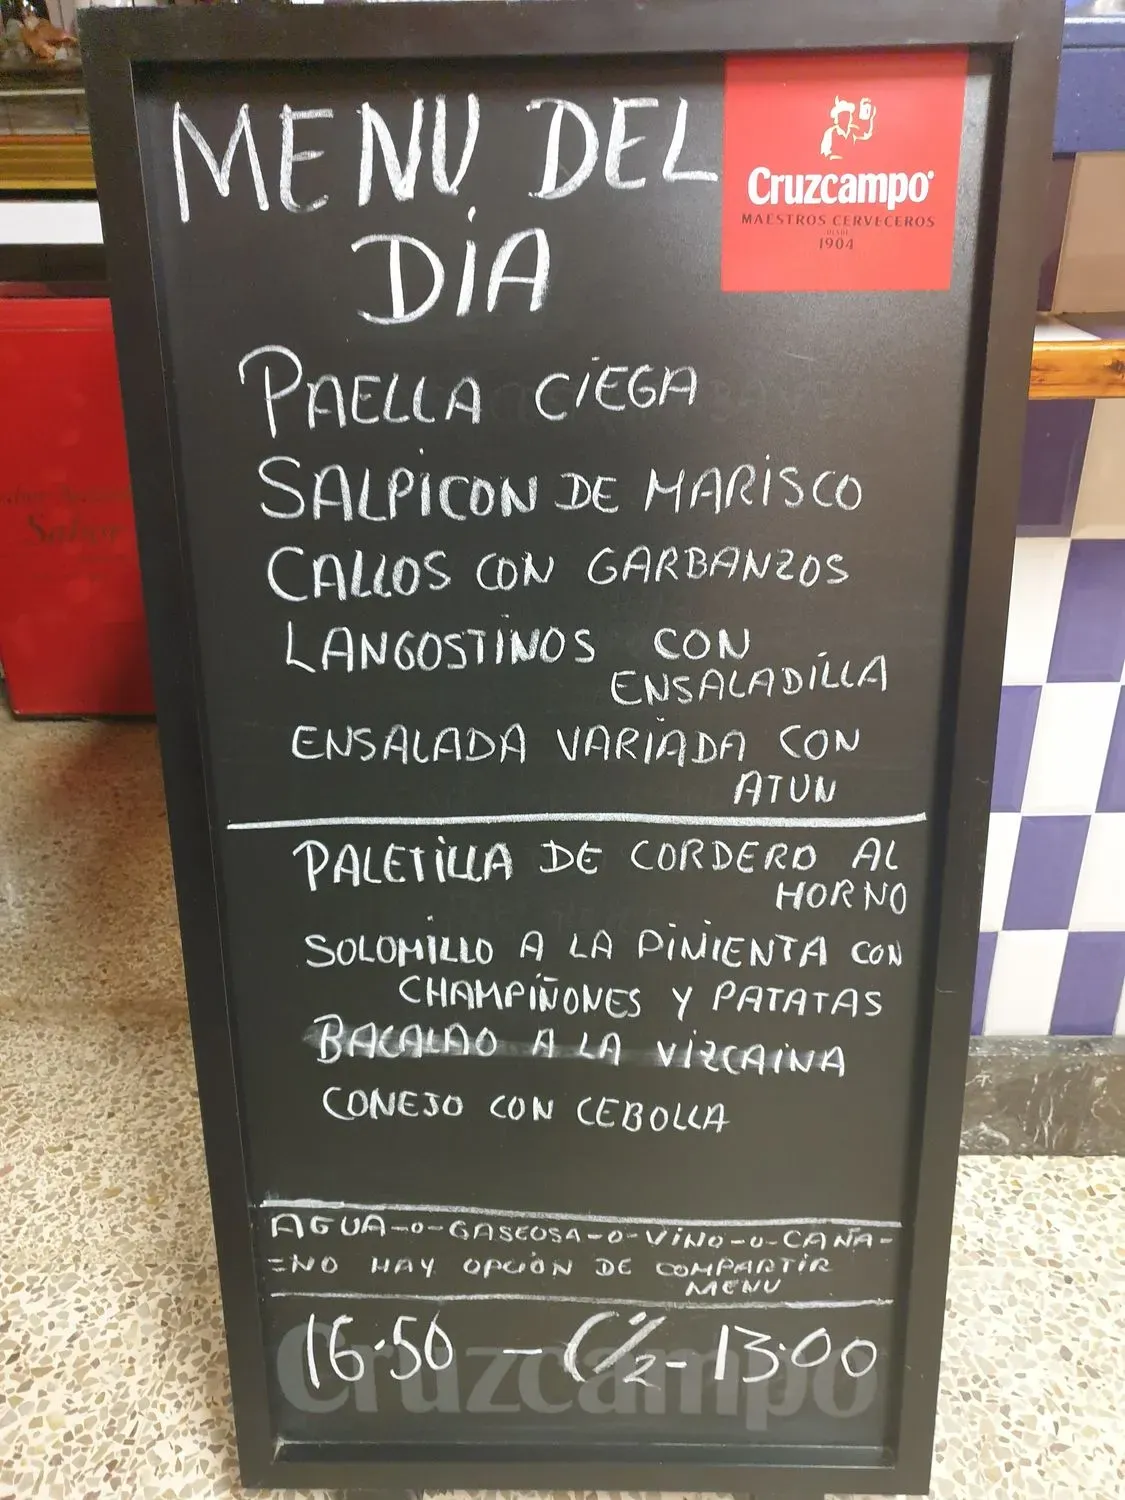 MENU DEL
DIA
Cruzcampo
MAESTROS CERVECEROS
DESDE
1904
PAELLA CIEGA
SALPICON DE MARISCO
CALLOS CON GARBANZOS
LANGOSTINOS CON
ENSALADILLA
ENSALADA VARIADA CON
ATUN
PALETILLA DE CORDERO AL
HORNO
SOLOMILLO A LA PIMIENTA CON
CHAMPIÑONES Y PATATAS
BACALAO A LA VIZCAINA
CONEJO CON CEBOLLA
AGUA-O-GASEOSA-O-VINO-O-CAÑA-
=NO HAY OPCIÓN DE COMPARTIR
MENU
16.50 - (1/2 - 13.00
Cruzcampo
Sabor